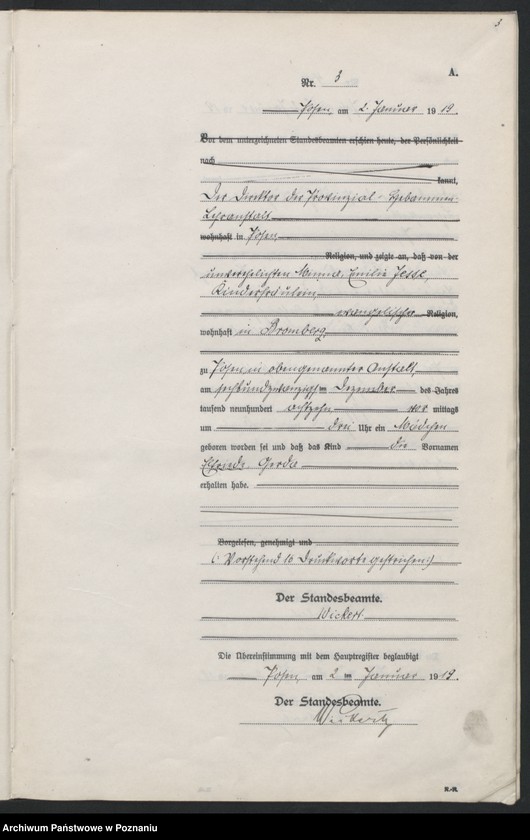 3
A.
Nr. 3
Posen, am 2. Januar 1919.
Vor dem unterzeichneten Standesbeamten erschien heute, der Persönlichkeit
nach
kannt,
Der Direktor der Provinzial-Hebammen-
Lehranstalt
wohnhaft in Posen,
Religion, und zeigte an, daß von der
unverehelichten Minna Emilie Jesse,
Kinderfräulein,
evangelischer Religion,
wohnhaft in Bromberg,
zu Posen, in obengenannter Anstalt,
am sechsundzwanzigsten Dezember des Jahres
tausend neunhundert achtzehn vor mittags
um drei Uhr ein Mädchen
geboren worden sei und daß das Kind die Vornamen
Elfriede Gerda
erhalten habe.
Vorgelesen, genehmigt und
(: Vorstehend 16 Druckworte gestrichen :)
Der Standesbeamte.
Wickert
Die Übereinstimmung mit dem Hauptregister beglaubigt
Posen, am 2 ten Januar 1919.
Der Standesbeamte.
R.-R.
Archiwum Państwowe w Poznaniu